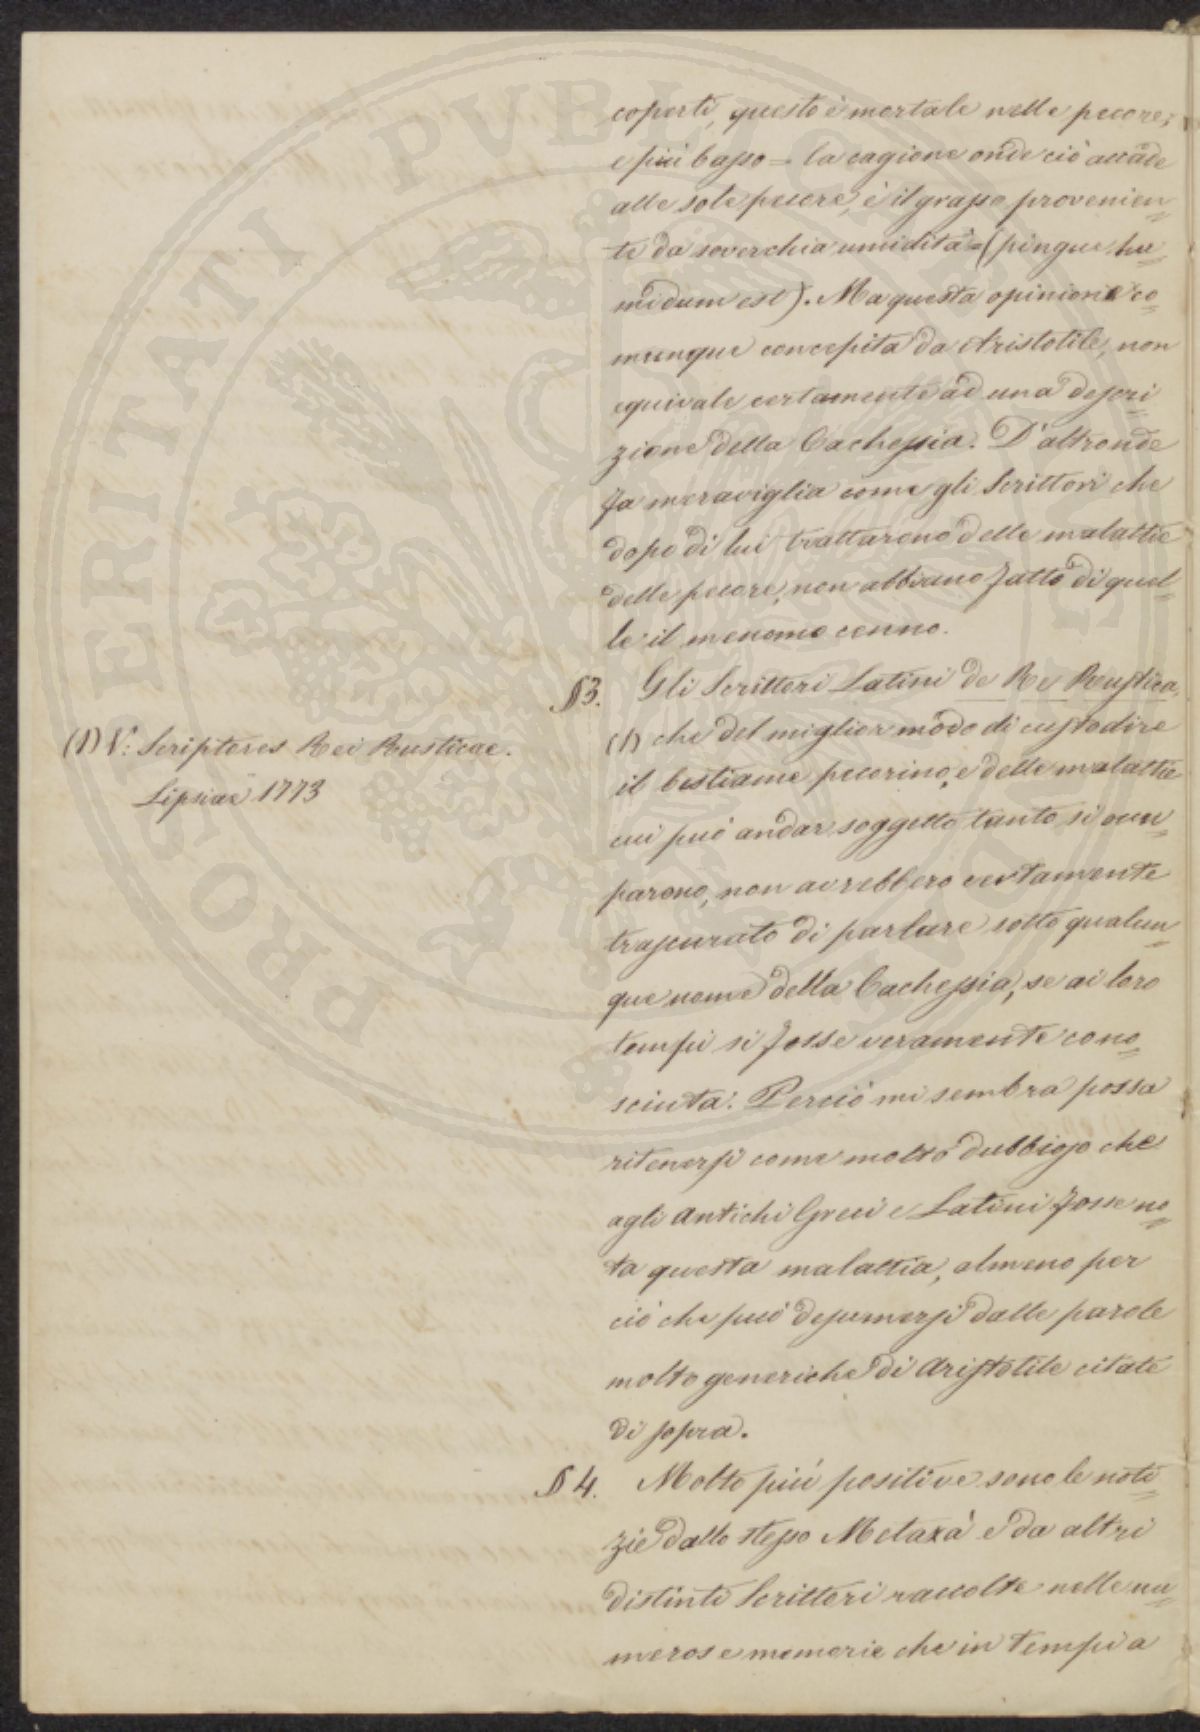 coperti, questo è mortale nelle pecore;
e più basso = la cagione onde ciò accade
alle sole pecore, è il grasso provenien=
te da soverchia umidità = (pingue hu=
midum est). Ma questa opinione co=
munque concepita da Aristotile, non
equivale certamente ad una descri=
zione della Cachessia. D'altronde
fa meraviglia come gli Scrittori che
dopo di lui trattarono delle malattie
delle pecore, non abbiano fatto di quel=
le il menomo cenno.
§3. Gli Scrittori Latini de Re Rustica,
(1) che del miglior modo di custodire
il bestiame pecorino, e delle malattie
cui può andar soggetto tanto si occu=
parono, non avrebbero certamente
trascurato di parlare sotto qualun=
que nome della Cachessia, se ai loro
tempi si fosse veramente cono=
sciuta. Perciò mi sembra possa
ritenersi come molto dubbioso che
agli antichi Greci e Latini fosse no=
ta questa malattia, almeno per
ciò che può desumersi dalle parole
molto generiche di Aristotile citate
di sopra.
§4. Molto più positive sono le noti=
zie dallo stesso Metaxà e da altri
distinti Scrittori raccolte nelle nu=
merose memorie che in tempi a
(1) V: Scriptores Rei Rusticae.
Lipsiae 1773
PROSPERITATI PVBLICAE